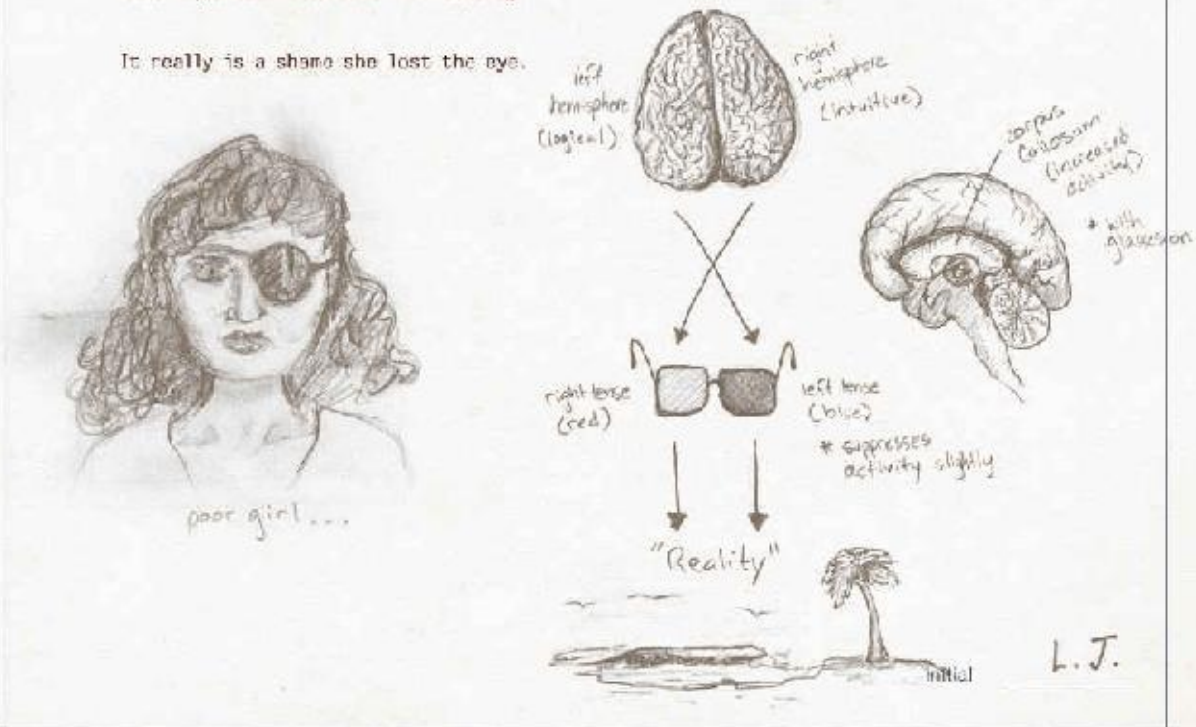 It really is a shame she lost the eye.
left
hemisphere
(logical)
right
hemisphere
(intuitive)
corpus
(increased
activity)
* with
right lense
(red)
left lense
(blue)
* suppresses
activity slightly
"Reality"
poor girl...
initial
L.J.